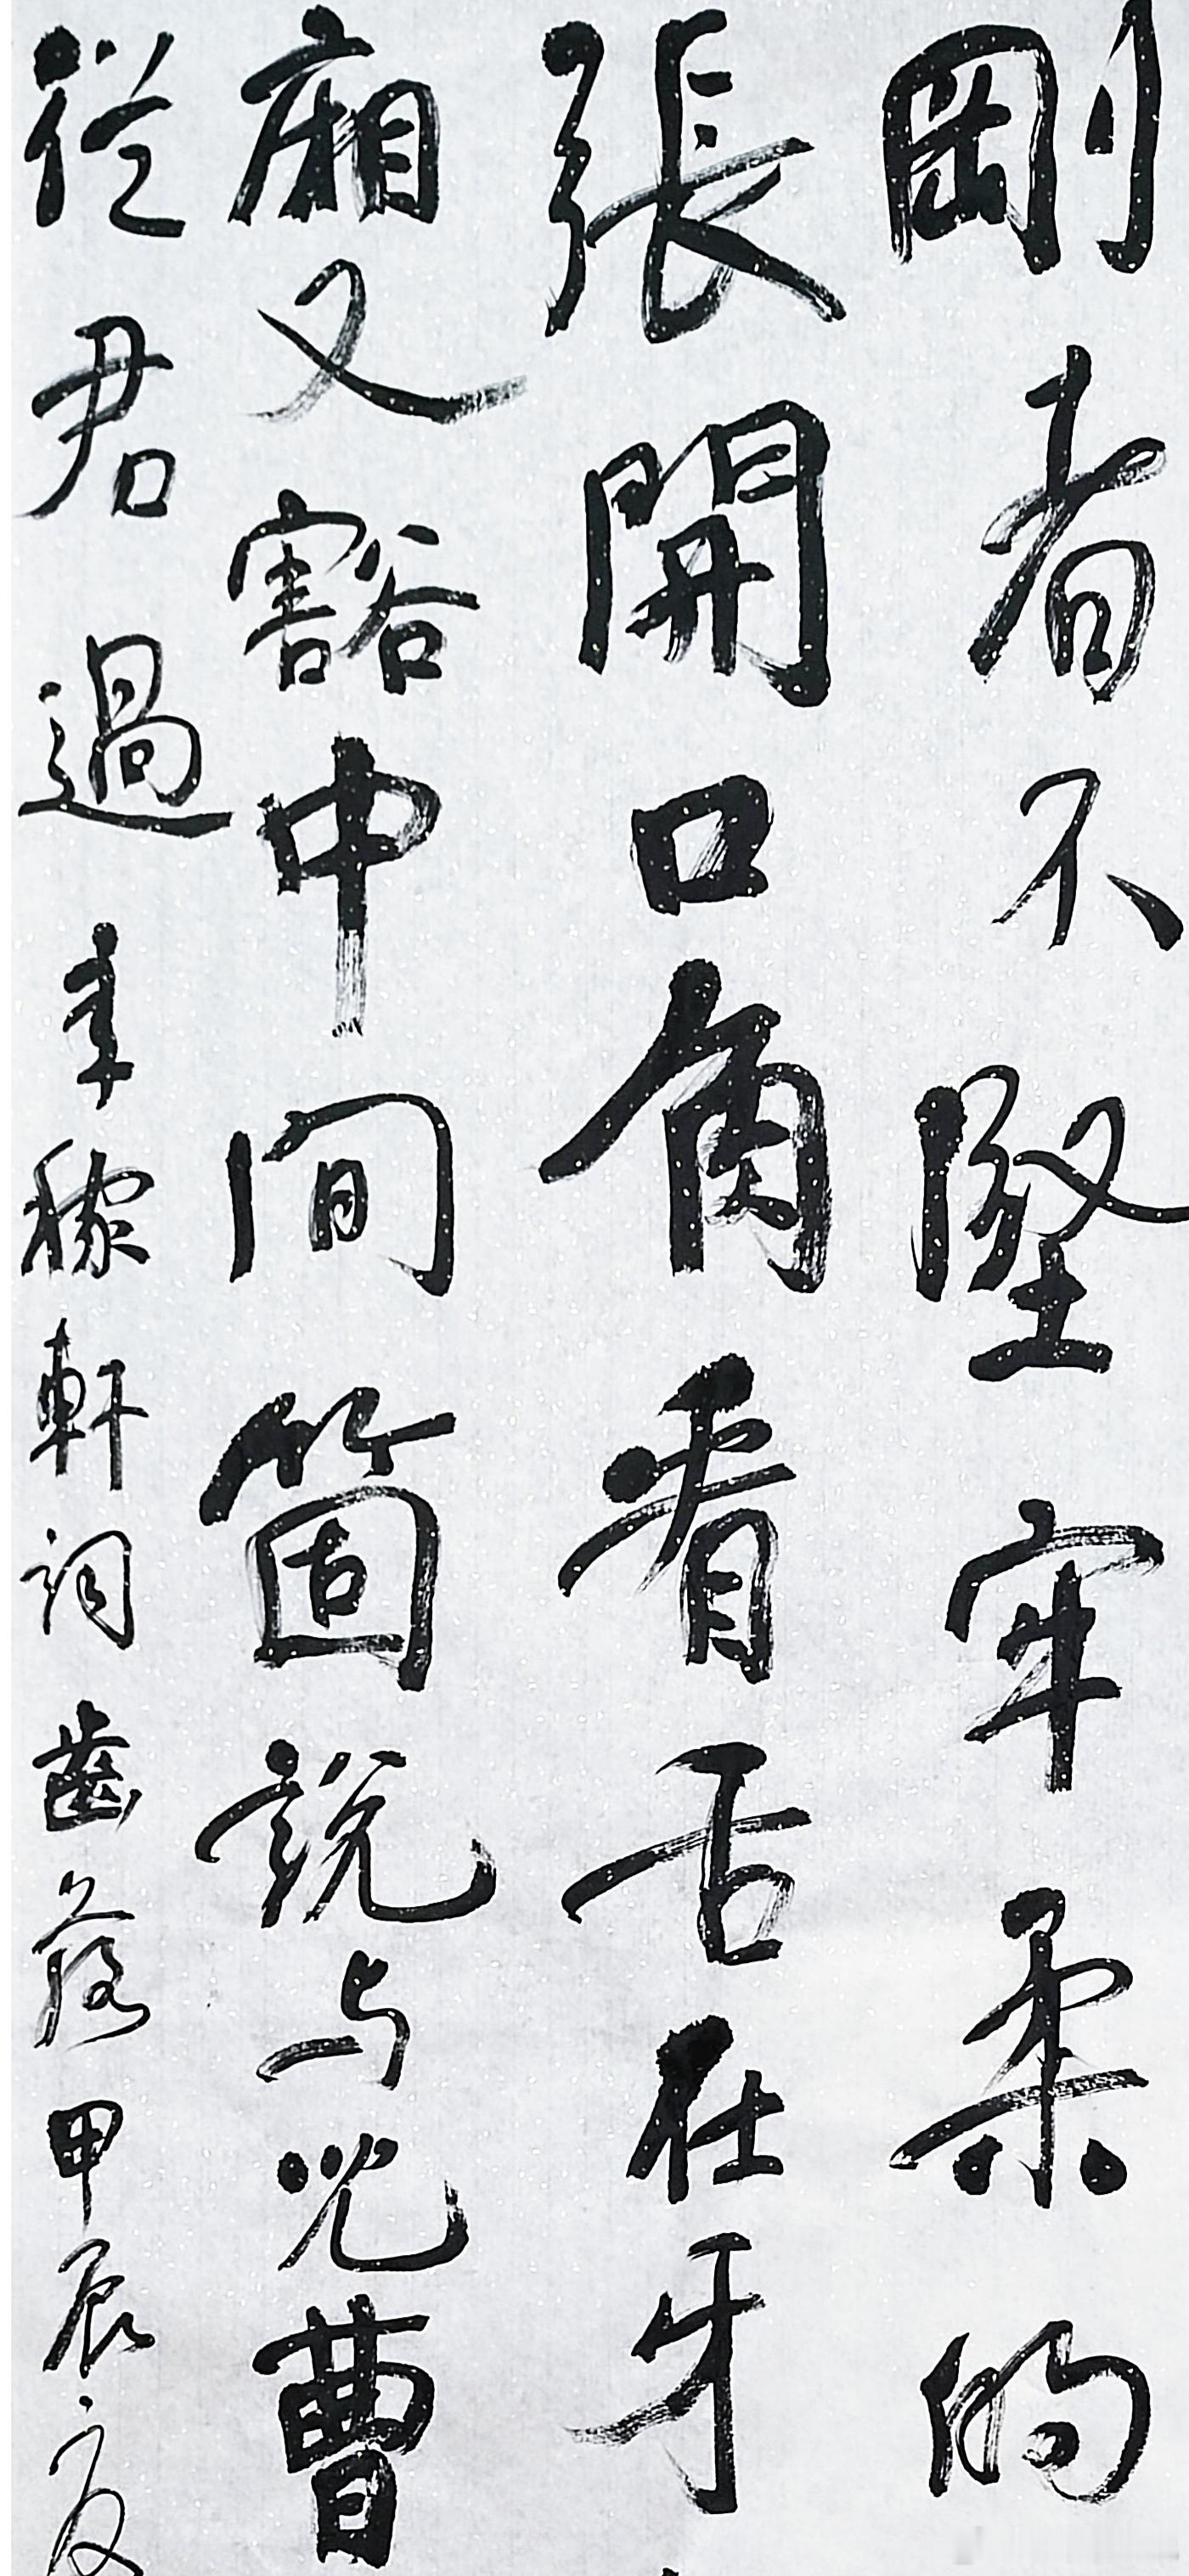 剛者不堅牢柔的
張開口角看舌在牙
廂又豁中間箇說与兒曹
從君過辛稼軒詞齒落甲辰夏